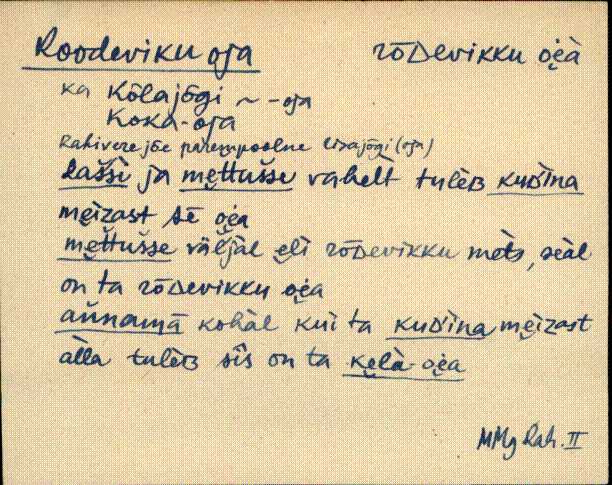 Roodeviku oja rōDevikku o̬i̯à
ka Kõlajõgi ~ -oja
Koka-oja
Rahivere jõe parempoolne lisajõgi (oja)
lašši ja me̬ttušše vahelt tuleʙ kuʙ́ina
me̬i̯zast sē o̬i̯a
me̬ttušše väĺjal e̬li rōDevikku mèts, seàl
on ta rōDevikku o̬i̯a
aùnamā kohàl kui ta kuʙ́ina me̬i̯zast
àlla tuleʙ sìs on ta ke̬là-o̬i̯a
MMg Rah. II